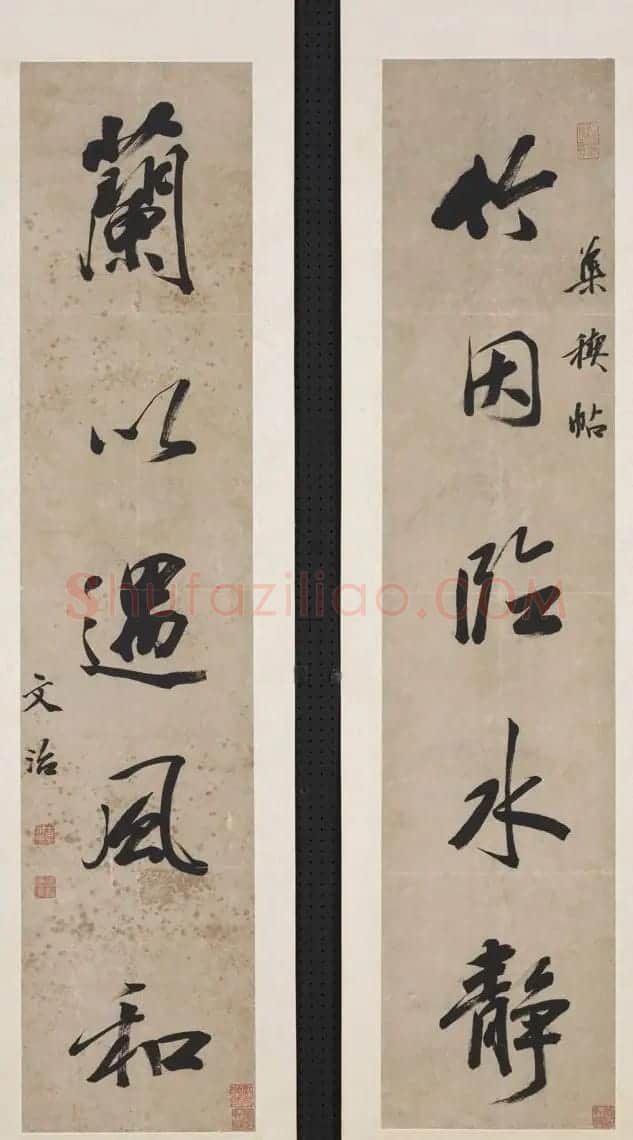 集禊帖
竹因臨水静
蘭以遇風和
文治
Shufaziliao.COM